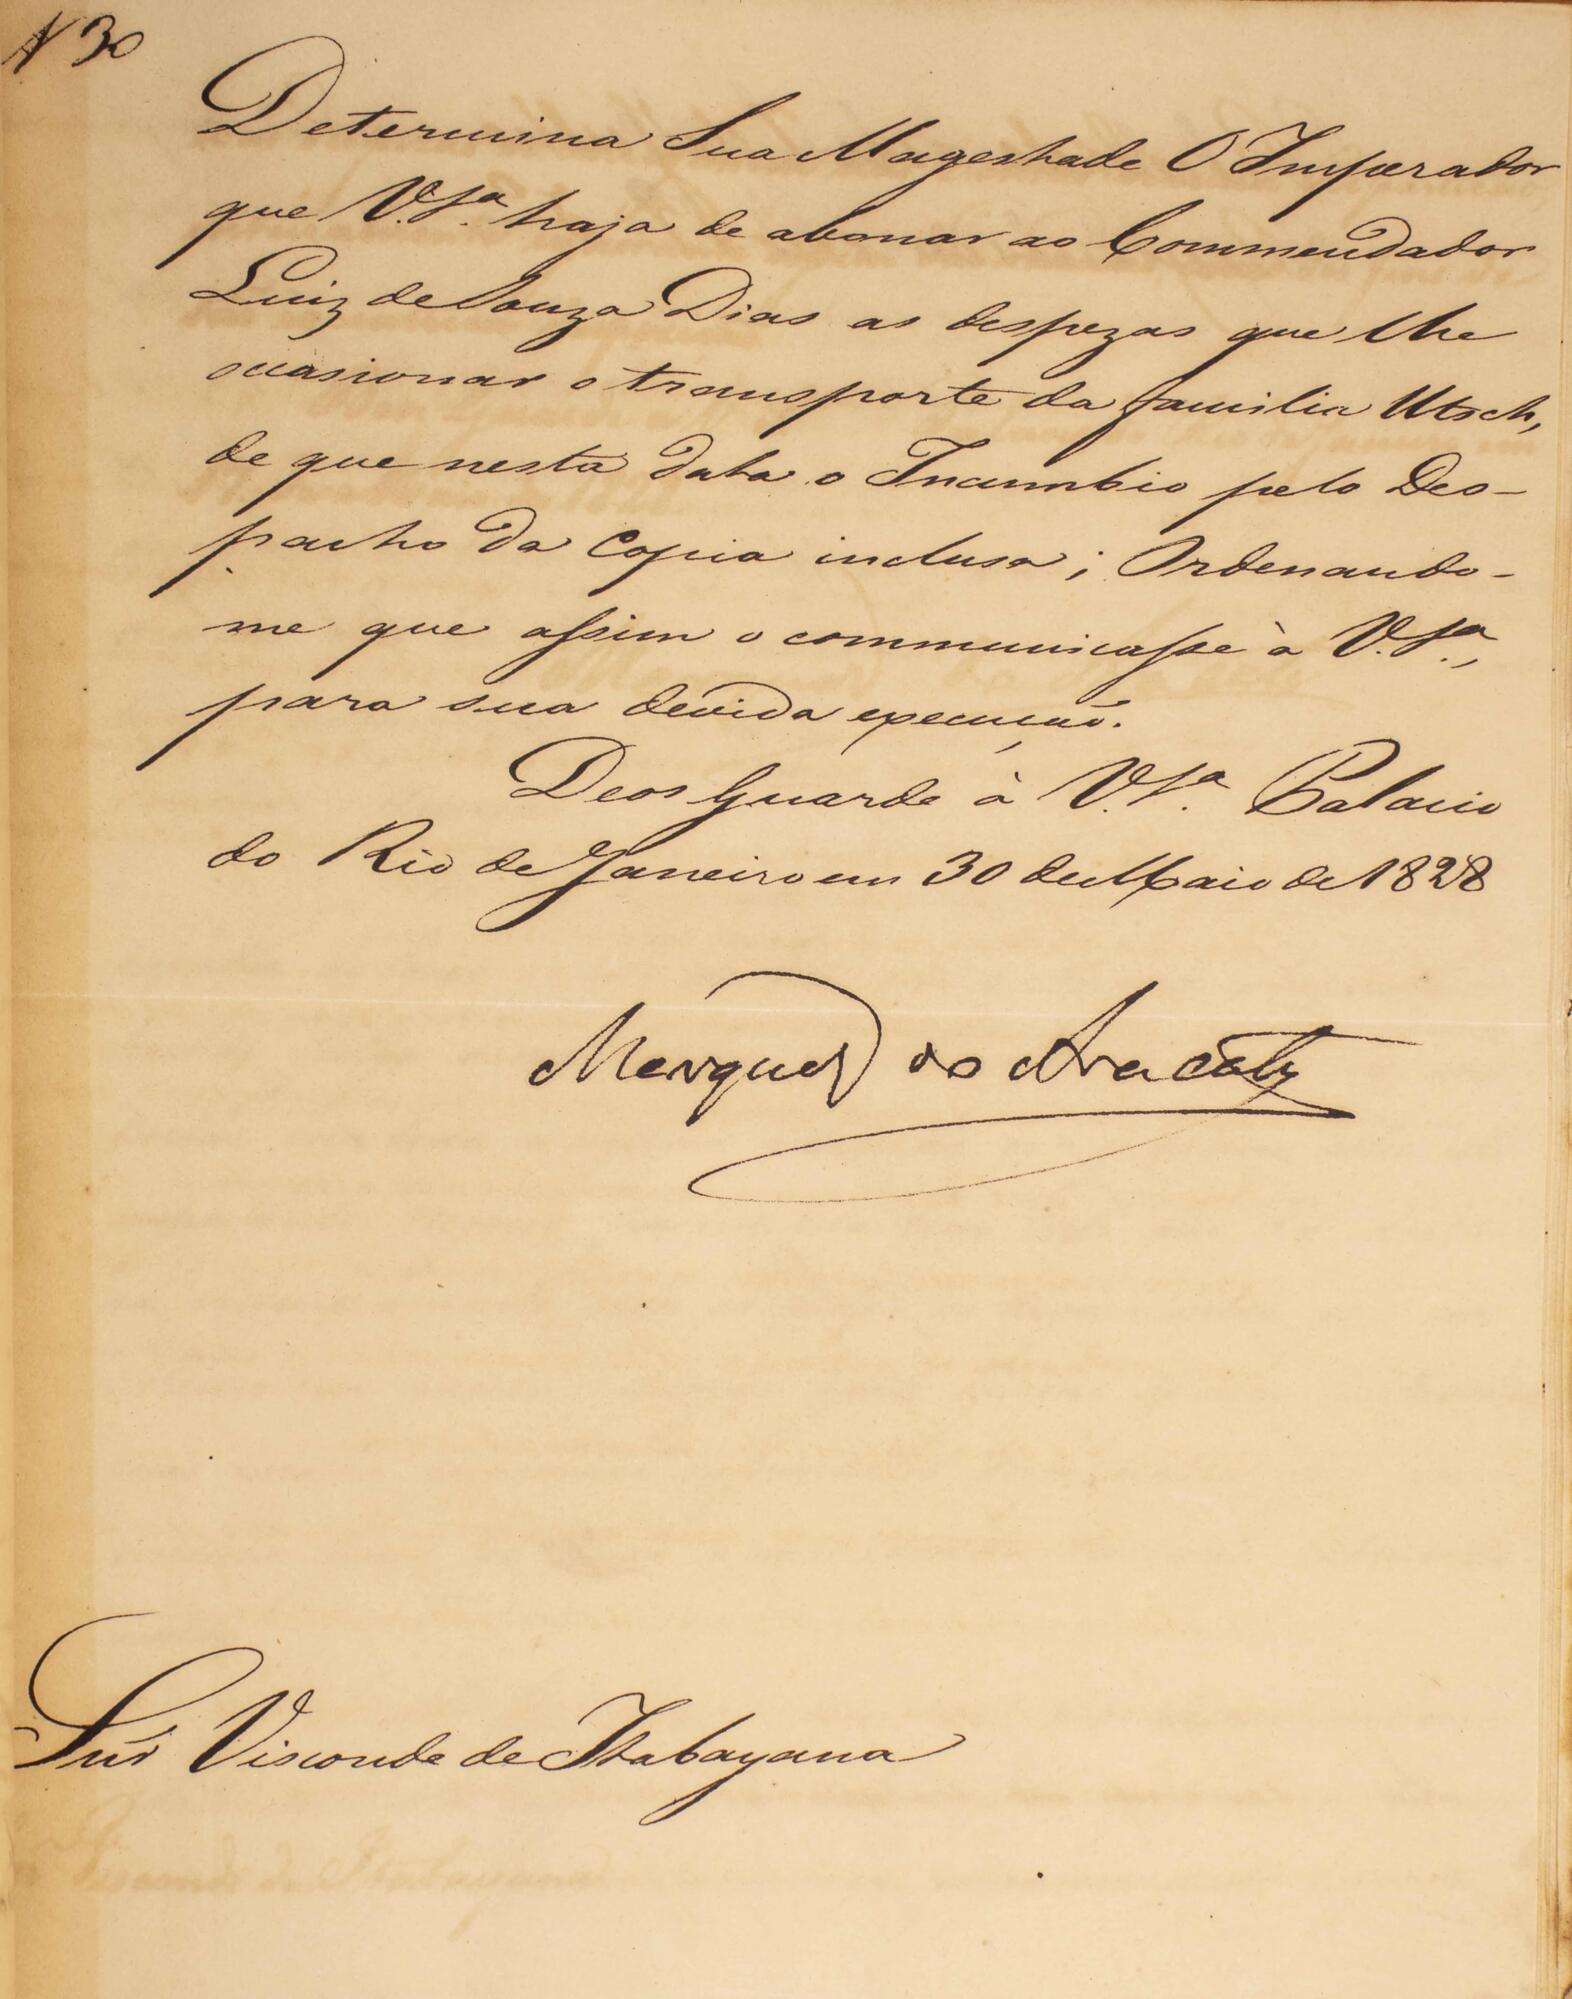 N 30
Determina Sua Magestade O Imperador
que V. Sª. haja de abonar ao Commendador
Luiz de Souza Dias as despezas que lhe
occasionar o transporte da familia Utsch,
de que nesta data o Incumbio pelo Des-
pacho da Copia inclusa; Ordenando-
me que assim o communicasse à V. Sª.,
para sua devida execução.
Deos Guarde à V. Sª. Palacio
do Rio de Janeiro em 30 de Maio de 1828
Marquez do Aracaty
Snr Visconde de Itabayana